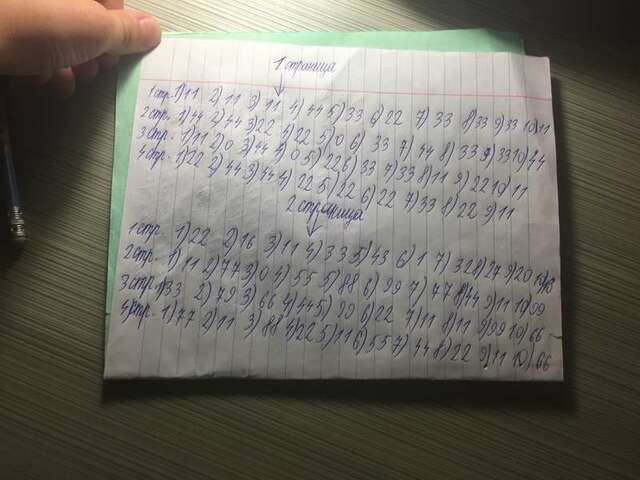 1 страница
1 стр. 1) 11 2) 11 3) 11 4) 44 5) 33 6) 22 7) 33 8) 33 9) 33 10) 11
2 стр. 1) 44 2) 44 3) 22 4) 22 5) 0 6) 33 7) 44 8) 33 9) 33 10) 44
3 стр. 1) 11 2) 0 3) 44 4) 0 5) 22 6) 33 7) 33 8) 11 9) 22 10) 11
4 стр. 1) 22 2) 44 3) 44 4) 22 5) 22 6) 22 7) 33 8) 22 9) 11
2 страница
1 стр. 1) 22 2) 16 3) 11 4) 33 5) 43 6) 1 7) 32
2 стр. 1) 11 2) 77 3) 0 4) 55 5) 88 6) 99 7) 77
3 стр. 1) 33 2) 49 3) 66 4) 44 5) 99 6) 22 7) 11 8) 11
4 стр. 1) 77 2) 11 3) 88 4) 22 5) 11 6) 55 7) 44 8) 22 9) 11 10) 66